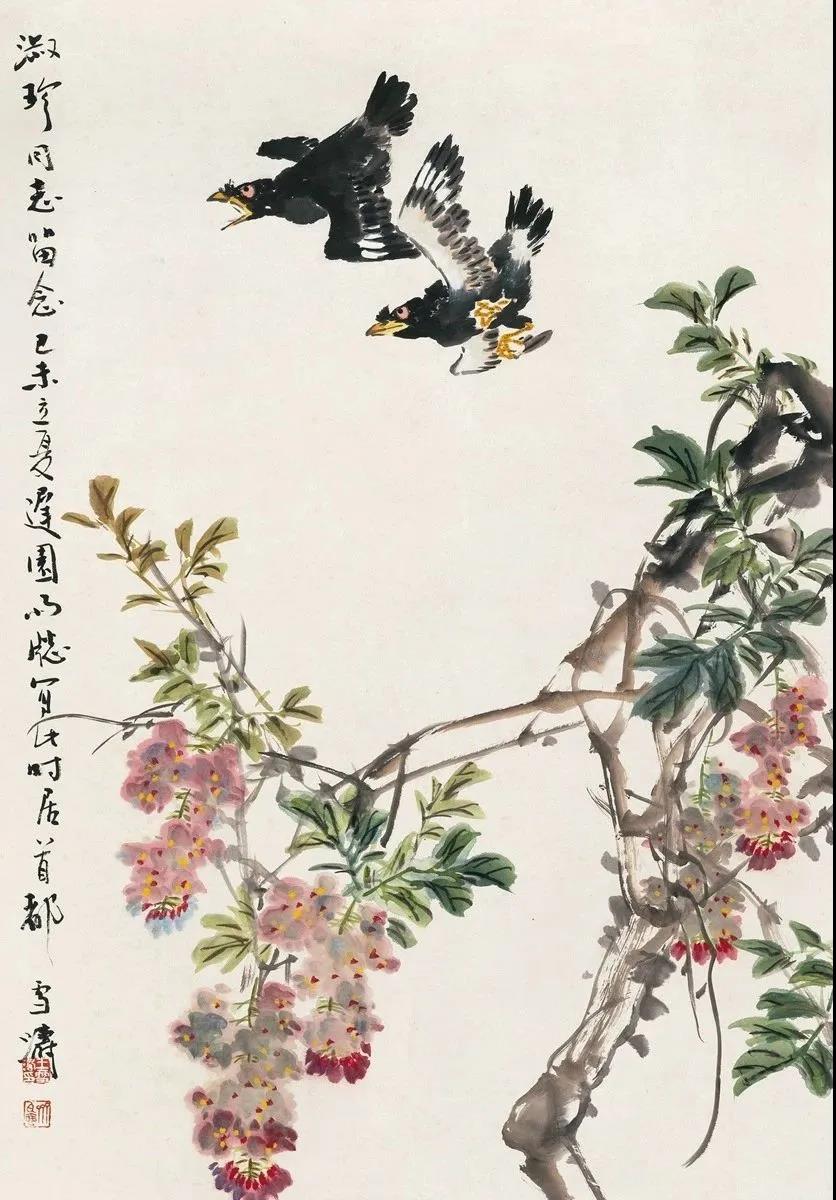 淑珍同志留念己未立夏遲園明牕寫此时居首都
雪濤